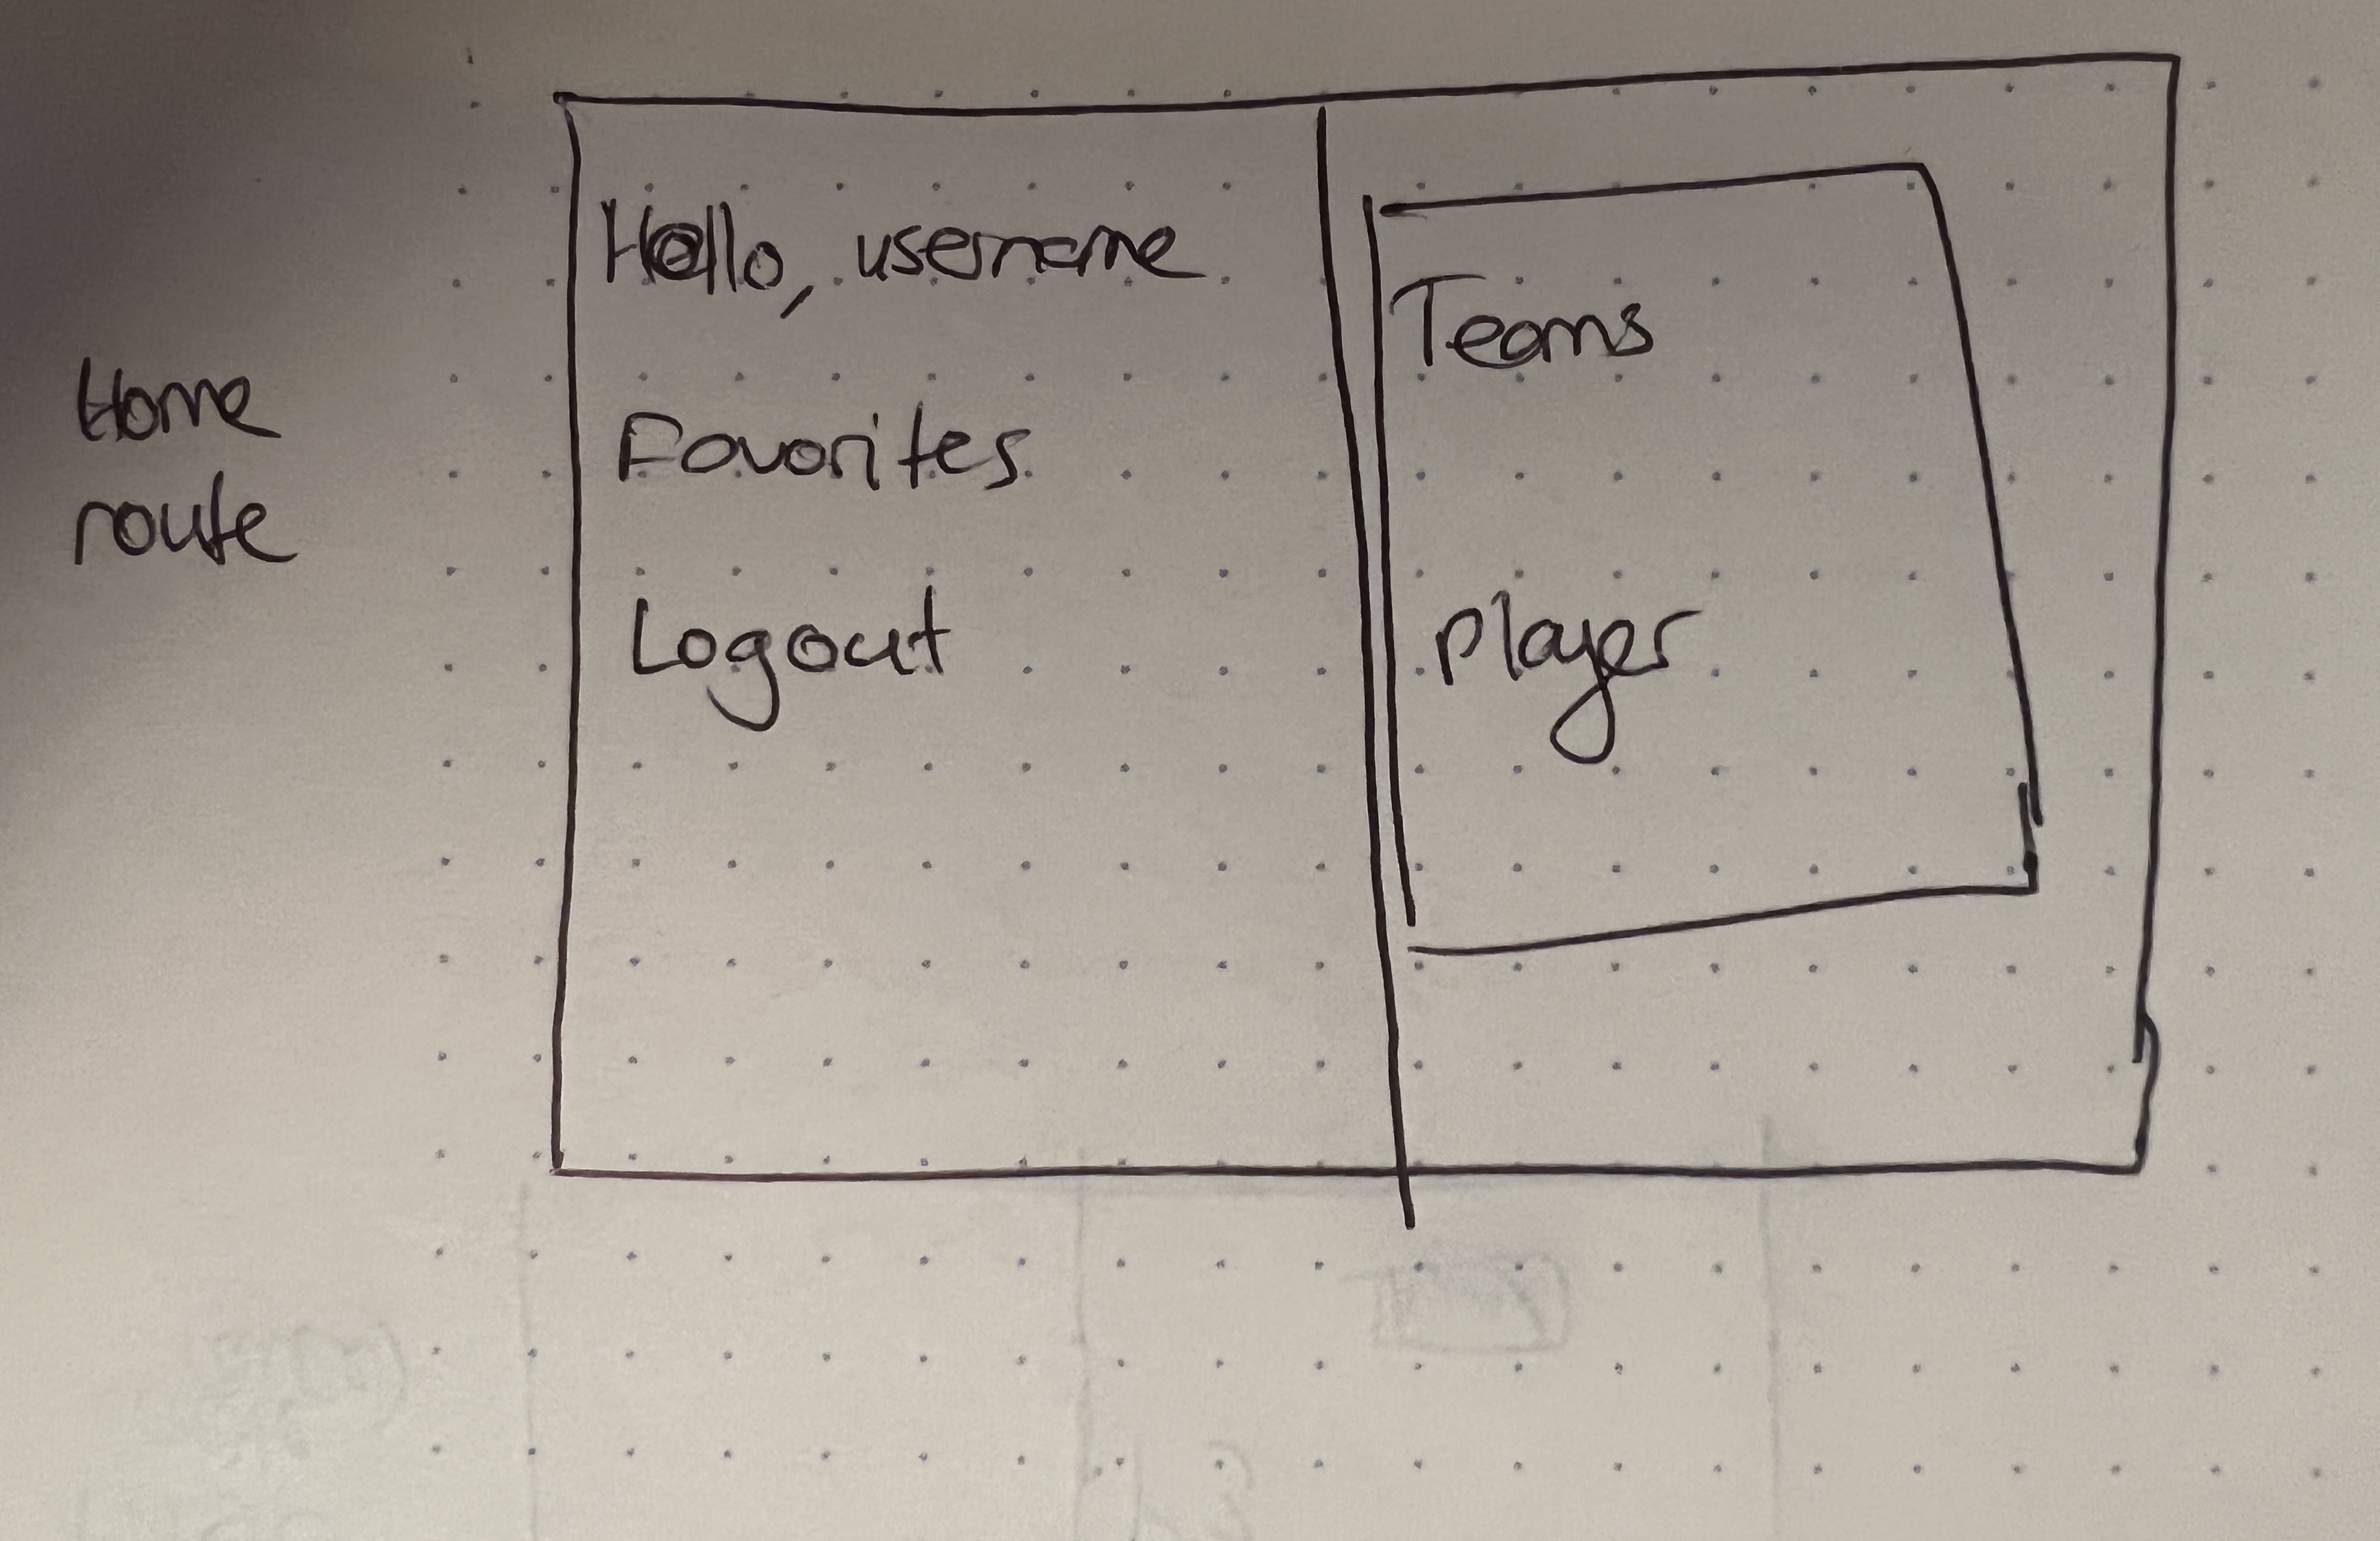 Home
route
Hello, username
Favorites
Logout
Teams
player